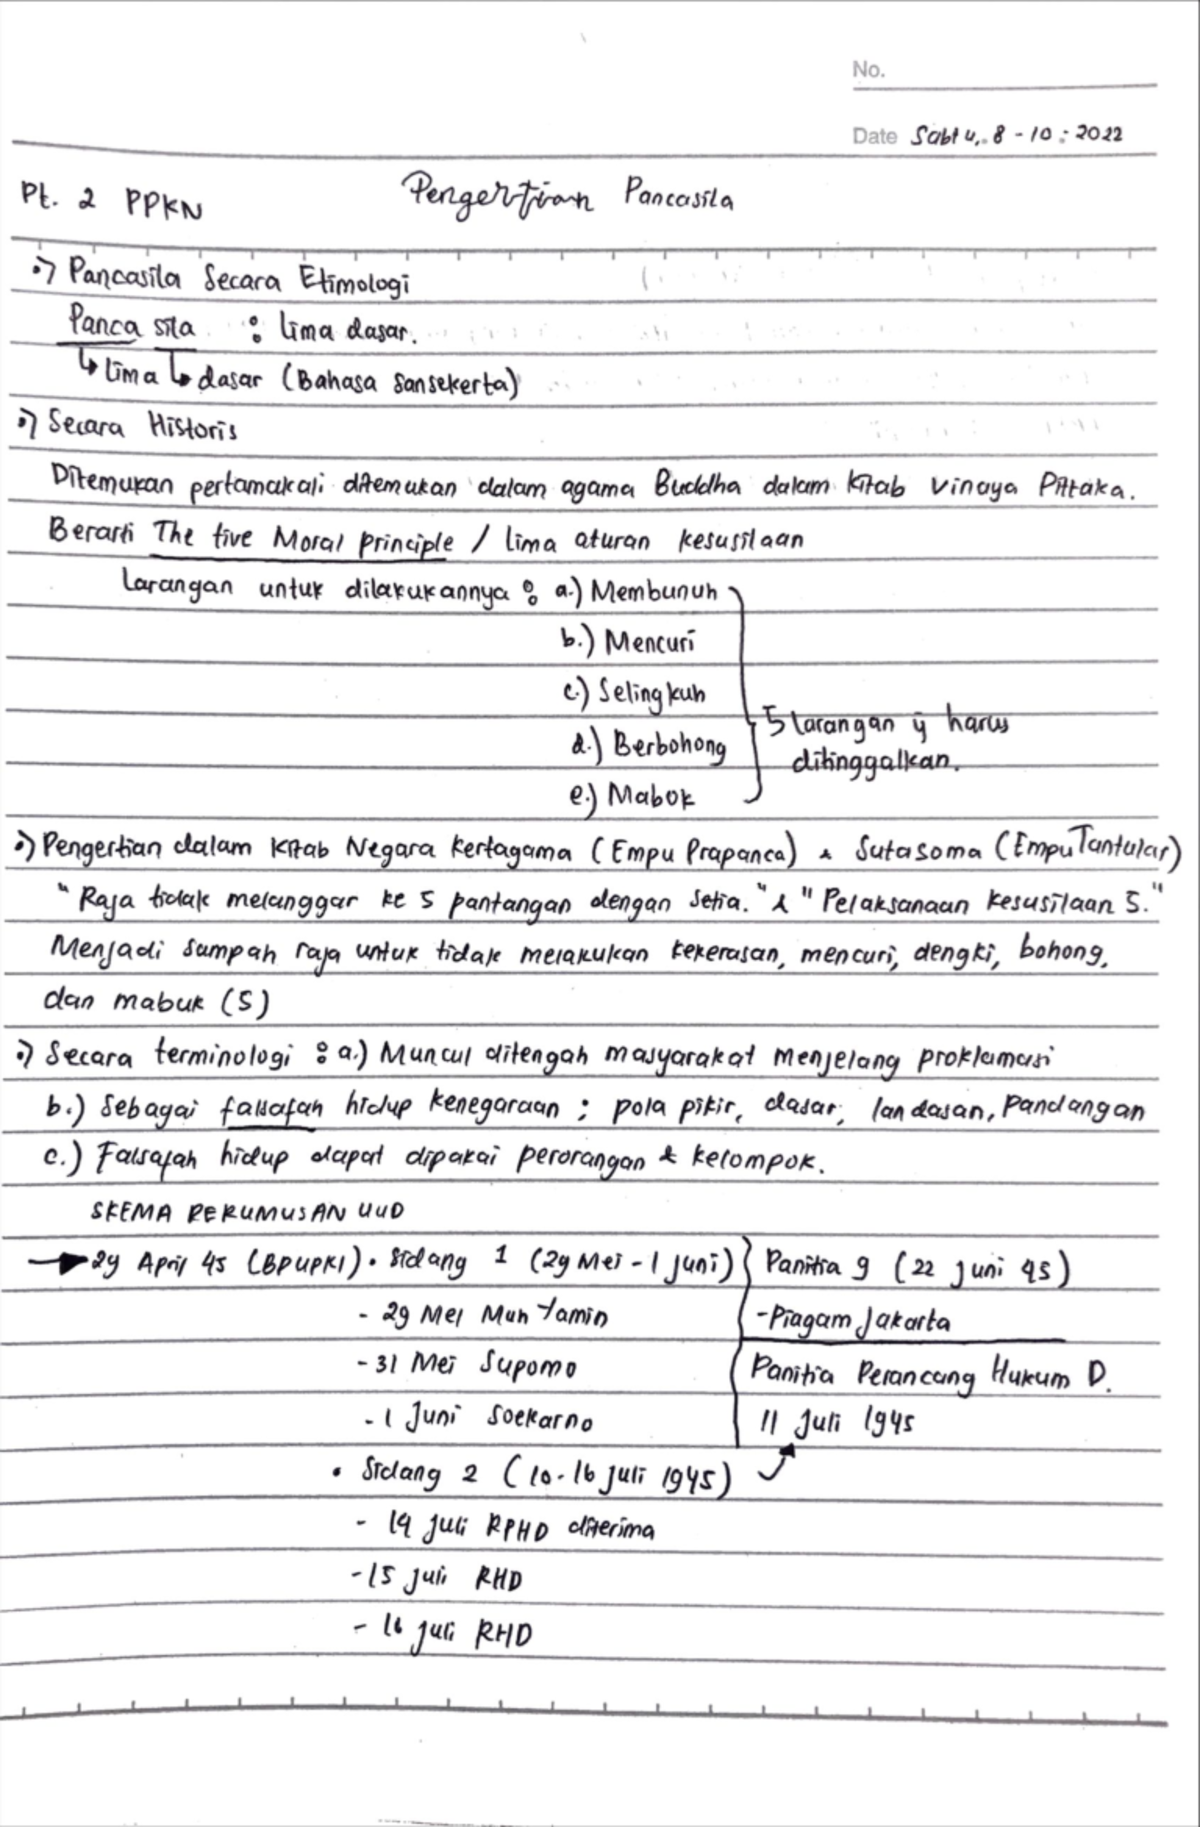 No.
Date Sabtu, 8 - 10 : 2022
Pt. 2 PPKN Pengertian Pancasila
Pancasila Secara Etimologi
Panca sila : lima dasar.
↳ lima ↳ dasar (Bahasa Sansekerta)
Secara Historis
Ditemukan pertamakali ditemukan dalam agama Buddha dalam kitab Vinaya Pittaka.
Berarti The five Moral principle / lima aturan kesusilaan
Larangan untuk dilakukannya : a.) Membunuh
b.) Mencuri
c.) Selingkuh
5 larangan yg harus
d.) Berbohong
ditinggalkan.
e.) Mabok
Pengertian dalam Kitab Negara Kertagama (Empu Prapanca) & Sutasoma (Empu Tantular)
"Raja tidak melanggar ke 5 pantangan dengan setia." & "Pelaksanaan kesusilaan 5."
Menjadi sumpah raja untuk tidak melakukan kekerasan, mencuri, dengki, bohong,
dan mabuk (5)
Secara terminologi : a.) Muncul ditengah masyarakat menjelang proklamasi
b.) Sebagai falsafah hidup kenegaraan ; pola pikir, dasar, landasan, Pandangan
c.) Falsafah hidup dapat dipakai perorangan & kelompok.
SKEMA PERUMUSAN UUD
→ 29 April 45 (BPUPKI) • Sidang 1 (29 Mei - 1 Juni) Panitia 9 (22 Juni 45)
- 29 Mei Muh Yamin - Piagam Jakarta
- 31 Mei Supomo Panitia Perancang Hukum D.
- 1 Juni Soekarno 11 Juli 1945
• Sidang 2 (10 - 16 Juli 1945)
- 14 Juli RPHD diterima
- 15 Juli RHD
- 16 Juli RHD